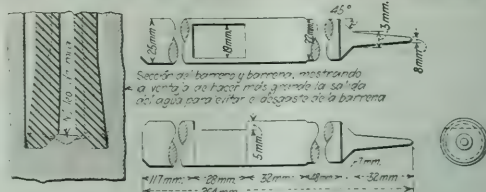 45°
3 mm.
25 mm.
18 mm.
22 mm.
8 mm.
Sección del barreno y barrena, mostrando
la ventaja de hacer más grande la salida
del agua para evitar el desgaste de la barrena
5 mm.
7 mm.
117 mm. 28 mm. 32 mm. 48 mm. 32 mm.
264 mm.